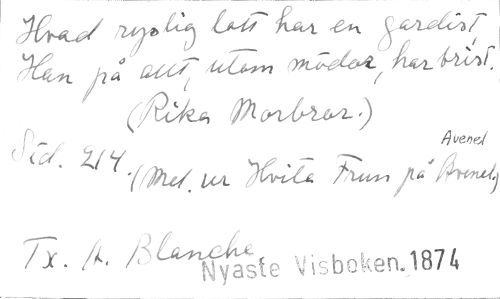 Hvad ryslig lott har en gardist,
Han på allt, utom mödor, har brist.
(Rika Morbror.)
Sid. 214.
Avenel
(Mel. ur Hvita Frun på Avenel.)
Tx. A. Blanche
Nyaste Visboken. 1874